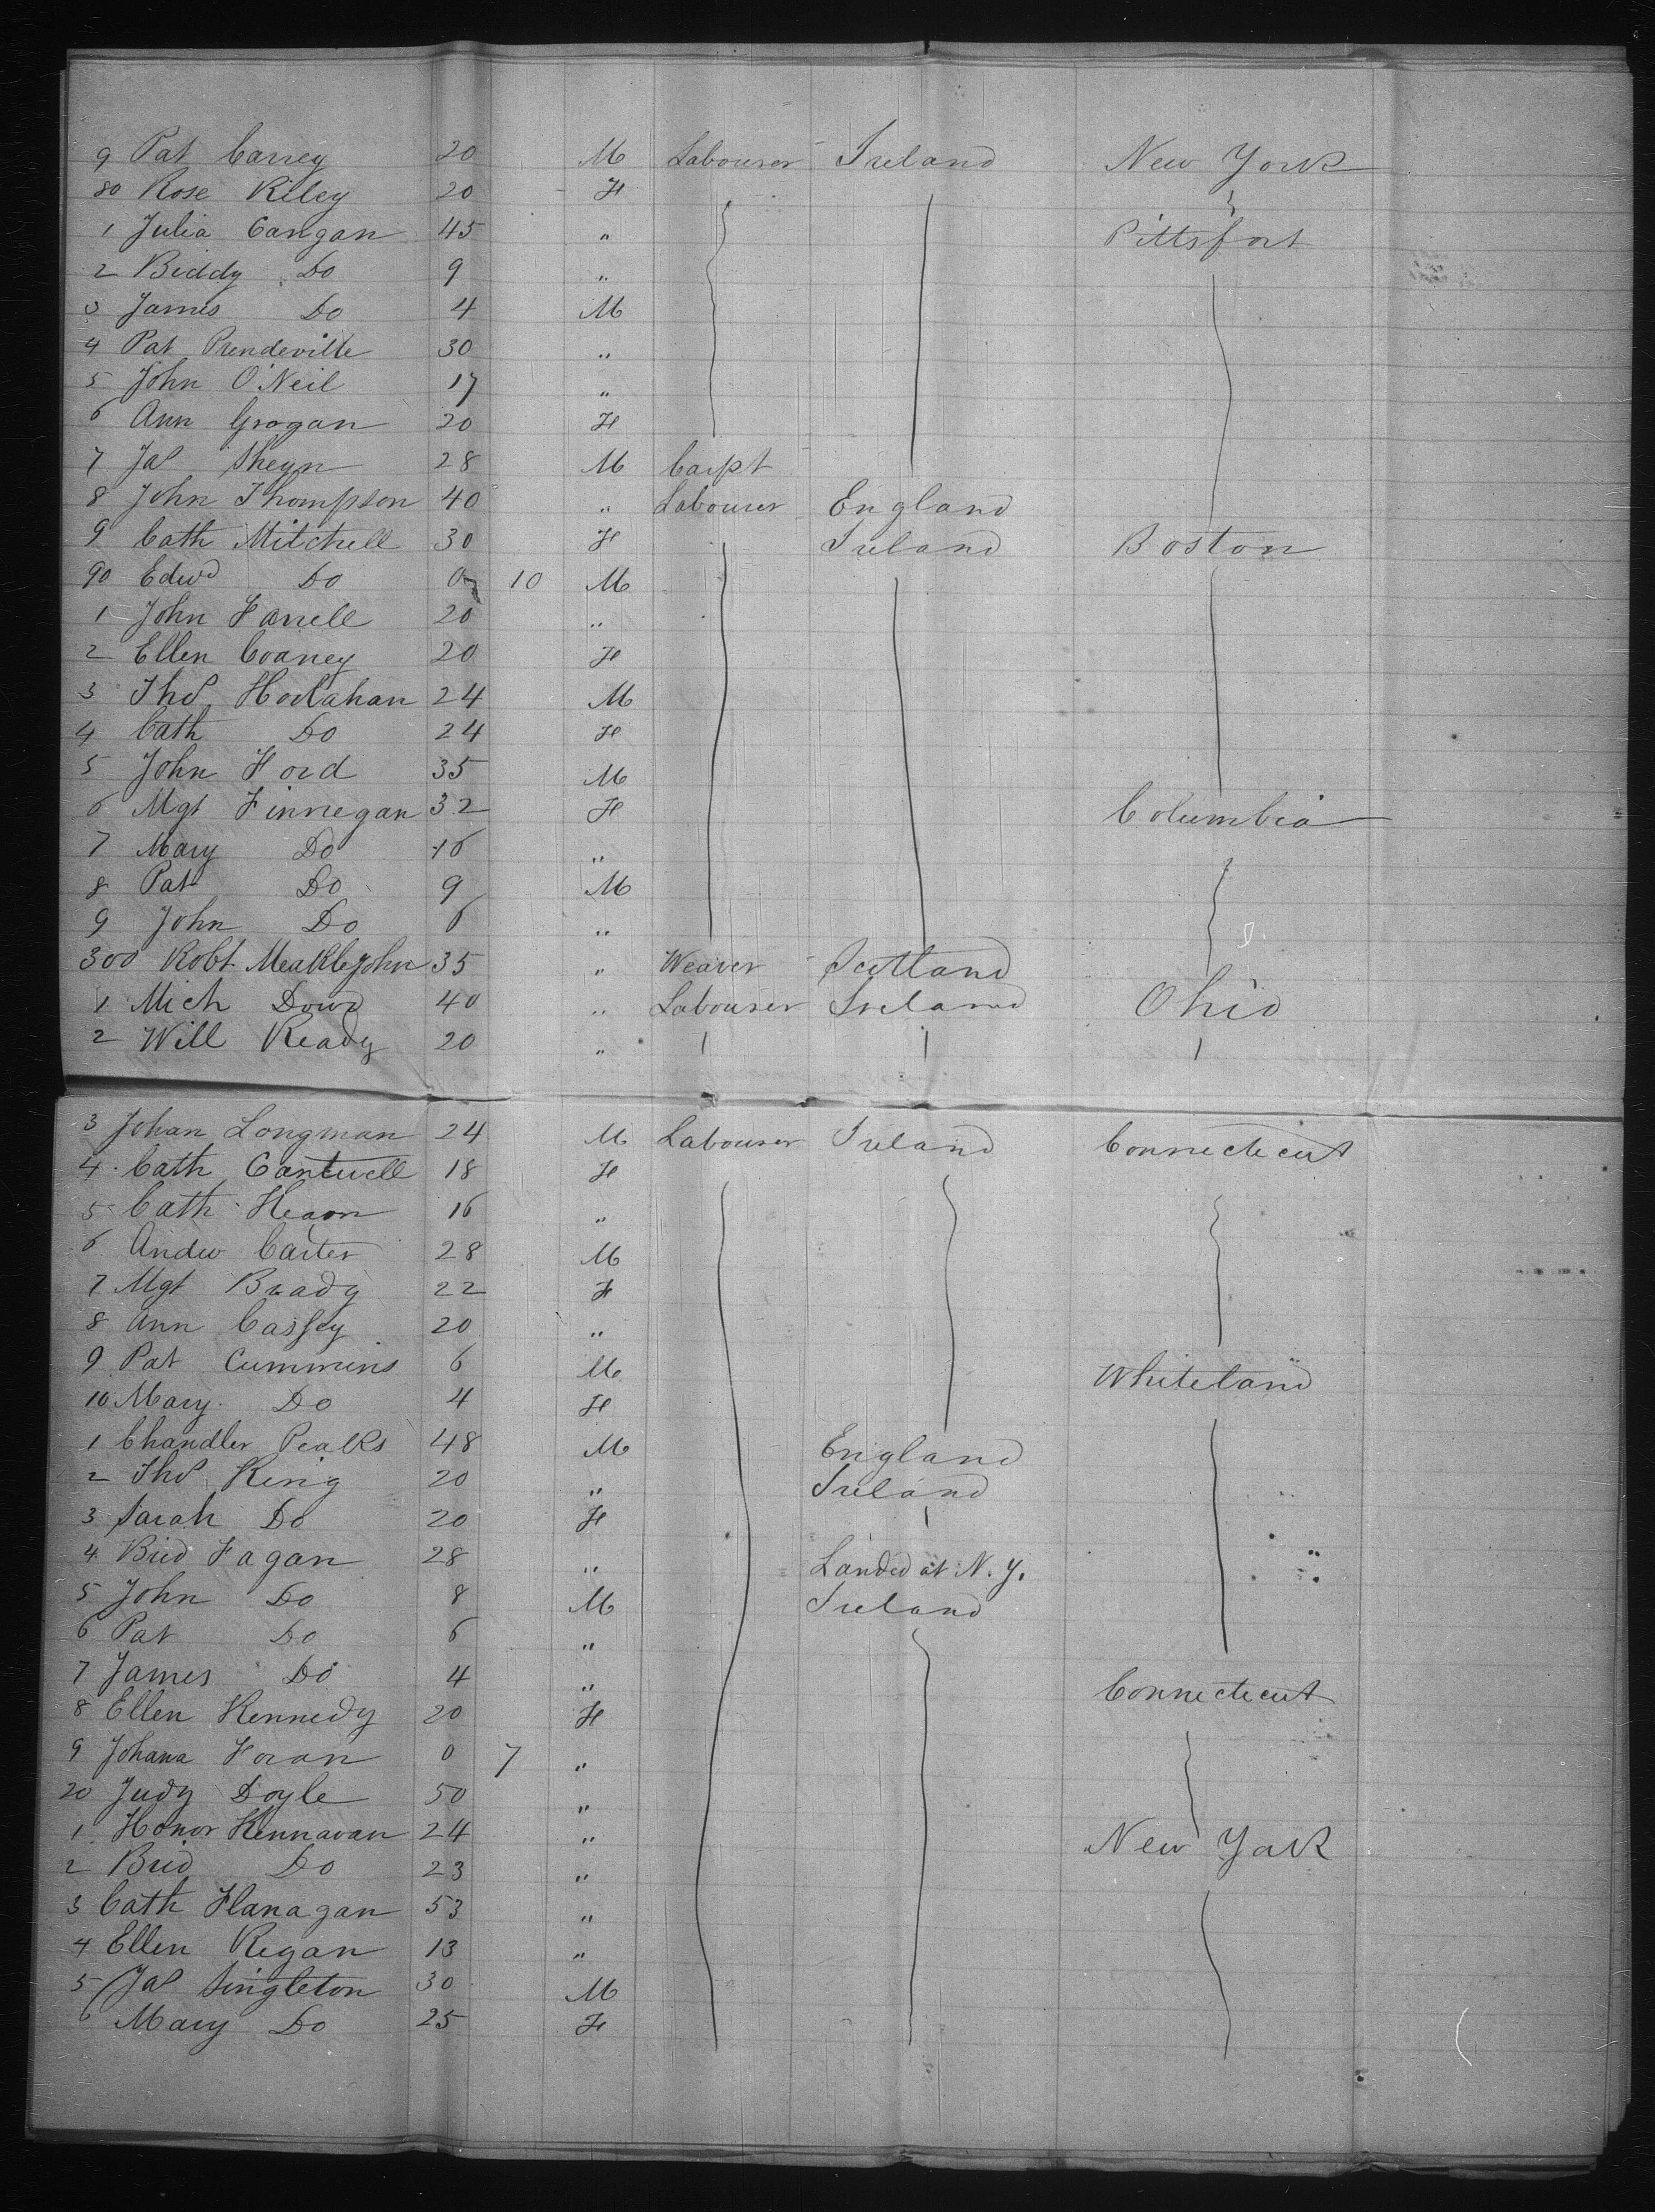 9 Pat Carrey 20 M Labourer Ireland New York
80 Rose Riley 20 F
1 Julia Gangan 45 " Pittsfort
2 Biddy Do 9 "
3 James Do 4 M
4 Pat Prendeville 30 "
5 John O'Neil 17 "
6 Ann Grogan 20 F
7 Jas Sheyn 28 M Carpt
8 John Thompson 40 " Labourer England
9 Cath Mitchell 30 F Ireland Boston
90 Edwd Do 0 10 M
1 John Farrell 20 "
2 Ellen Coaney 20 F
3 Thos Hoolahan 24 M
4 Cath Do 24 F
5 John Ford 35 M
6 Mgt Finnegan 32 F Columbia
7 Mary Do 16 "
8 Pat Do 9 M
9 John Do 6 "
300 Robt Meaklejohn 35 " Weaver Scotland
1 Mich Dowd 40 " Labourer Ireland Ohio
2 Will Ready 20 "
3 Johan Longman 24 M Labourer Ireland Connecticut
4 Cath Cantwell 18 F
5 Cath Heaon 16 "
6 Andw Carter 28 M
7 Mgt Brady 22 F
8 Ann Cassey 20 "
9 Pat Cummins 6 M Whiteland
10 Mary Do 4 F
1 Chandler Pealks 48 M England
2 Thos King 20 " Ireland
3 Sarah Do 20 F
4 Brid Fagan 28 " Landed at N.Y.
5 John Do 8 M Ireland
6 Pat Do 6 "
7 James Do 4 " Connecticut
8 Ellen Kennedy 20 F
9 Johana Foran 0 7 "
20 Judy Doyle 50 "
1 Honor Kennavan 24 " New York
2 Brid Do 23 "
3 Cath Flanagan 53 "
4 Ellen Regan 13 "
5 Jas Singleton 30 M
6 Mary Do 25 F